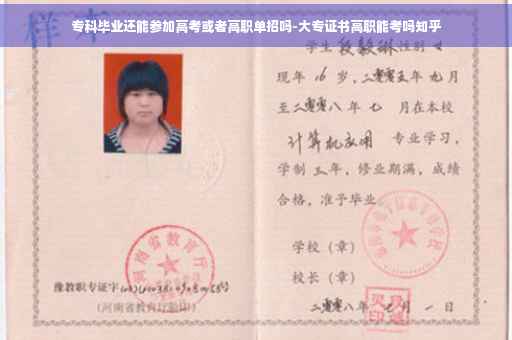 专科毕业还能参加高考或者高职单招吗-大专证书高职能考吗知乎
样本
学生段毅琳性别女
现年16岁，二零零五年九月
至二零零八年七月在本校
计算机应用 专业学习，
学制三年，修业期满，成绩
合格，准予毕业。
学校（章）
校长（章）
二零零八年七月一日
河南省教育厅
豫教职专证字
（河南省教育厅验印）